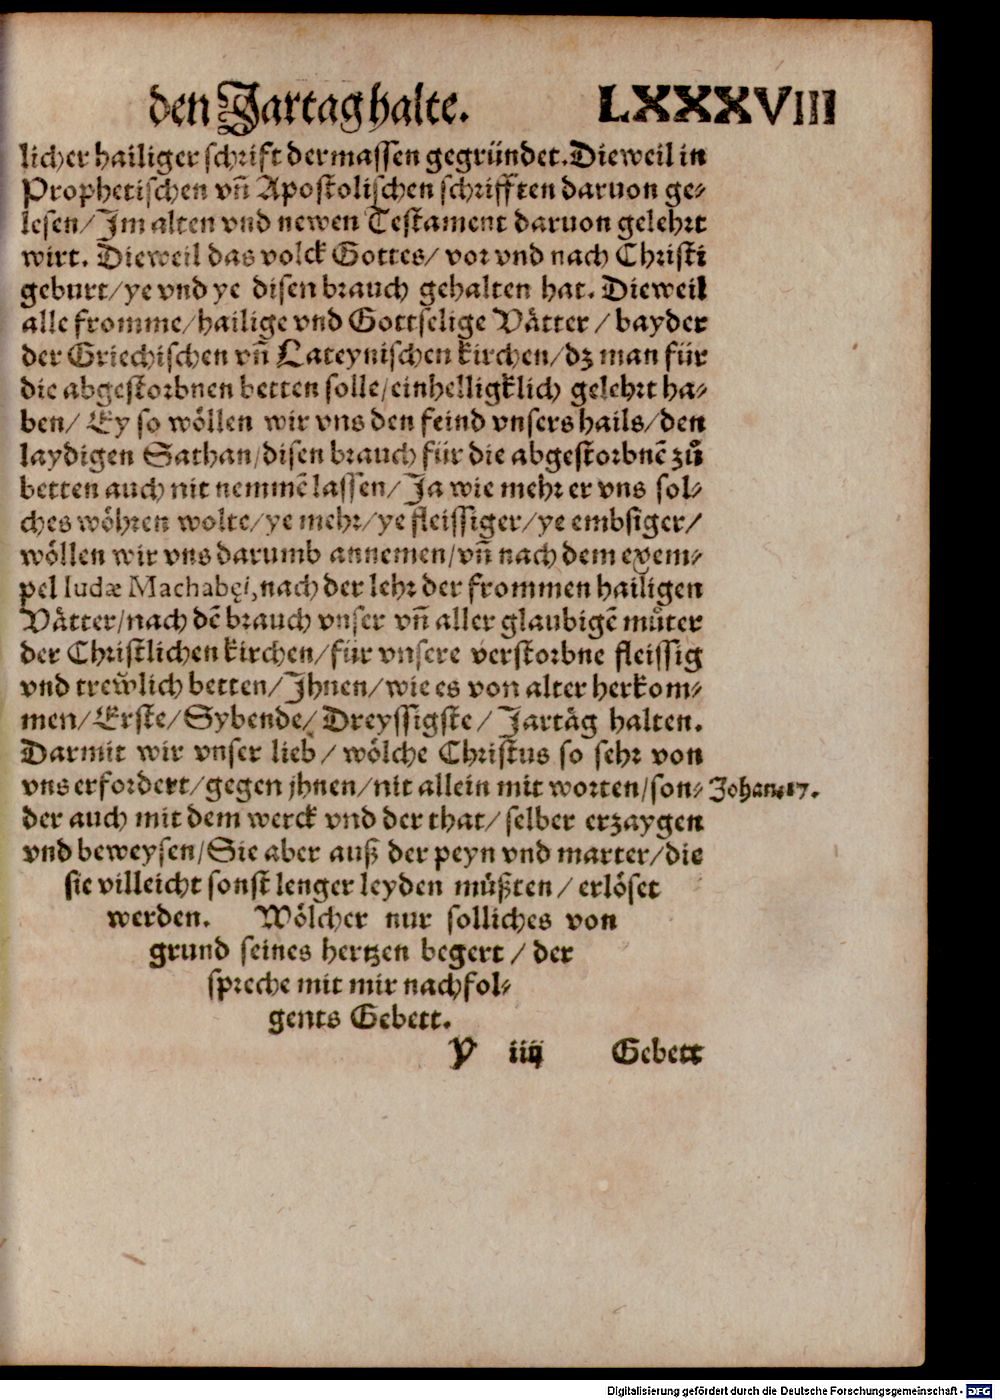 den Jartag halte. LXXXVIII
licher hailiger schrift dermassen gegründet. Dieweil in
Prophetischen vñ Apostolischen schrifften daruon ge⸗
lesen/ Im alten vnd newen Testament daruon gelehrt
wirt. Dieweil das volck Gottes/ vor vnd nach Christi
geburt/ ye vnd ye disen brauch gehalten hat. Dieweil
alle fromme/ hailige vnd Gottselige Vaͤtter/ bayder
der Griechischen vñ Lateynischen kirchen/ dz man für
die abgestorbnen betten solle/ einhelligklich gelehrt ha⸗
ben/ Ey so woͤllen wir vns den feind vnsers hails/ den
laydigen Sathan/ disen brauch für die abgestorbnẽ zů
betten auch nit nemmẽ lassen/ Ja wie mehr er vns sol⸗
ches woͤhren wolte/ ye mehr/ ye fleissiger/ ye embsiger/
woͤllen wir vns darumb annemen/ vñ nach dem exem⸗
pel Iudæ Machabęi, nach der lehr der frommen hailigen
Vaͤtter/ nach dẽ brauch vnser vñ aller glaubigẽ můter
der Christlichen kirchen/ für vnsere verstorbne fleissig
vnd trewlich betten/ Ihnen/ wie es von alter herkom⸗
men/ Erste/ Sybende/ Dreyssigste/ Jartaͤg halten.
Darmit wir vnser lieb/ woͤlche Christus so sehr von
vns erfordert/ gegen jhnen/ nit allein mit worten/ son⸗ Johan. 17.
der auch mit dem werck vnd der that/ selber erzaygen
vnd beweysen/ Sie aber auß der peyn vnd marter/ die
sie villeicht sonst lenger leyden müßten/ erloͤset
werden. Woͤlcher nur solliches von
grund seines hertzen begert/ der
spreche mit mir nachfol⸗
gents Gebett.
Y iiij Gebett
Digitalisierung gefördert durch die Deutsche Forschungsgemeinschaft - DFG